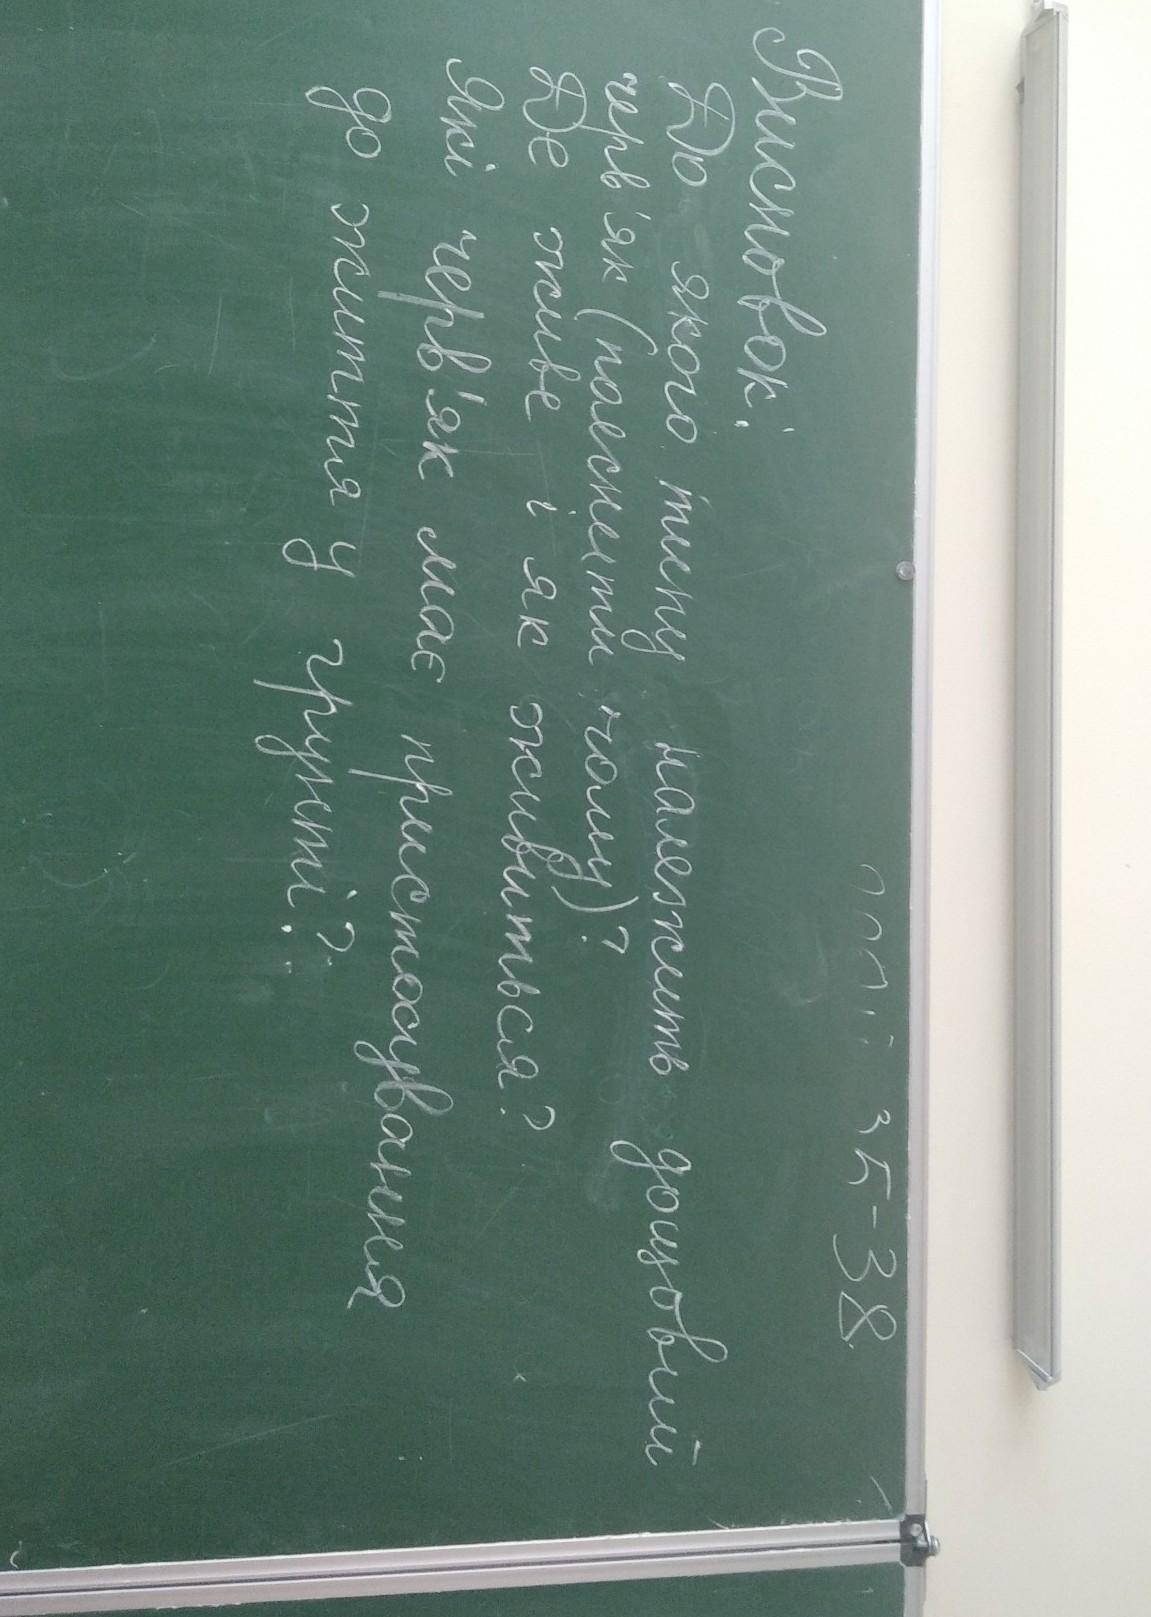 35-38
Висновок:
До якого типу належить дощовий
черв'як (пояснити чому)?
Де живе і як живиться?
Які черв'як має пристосування
до життя у грунті?